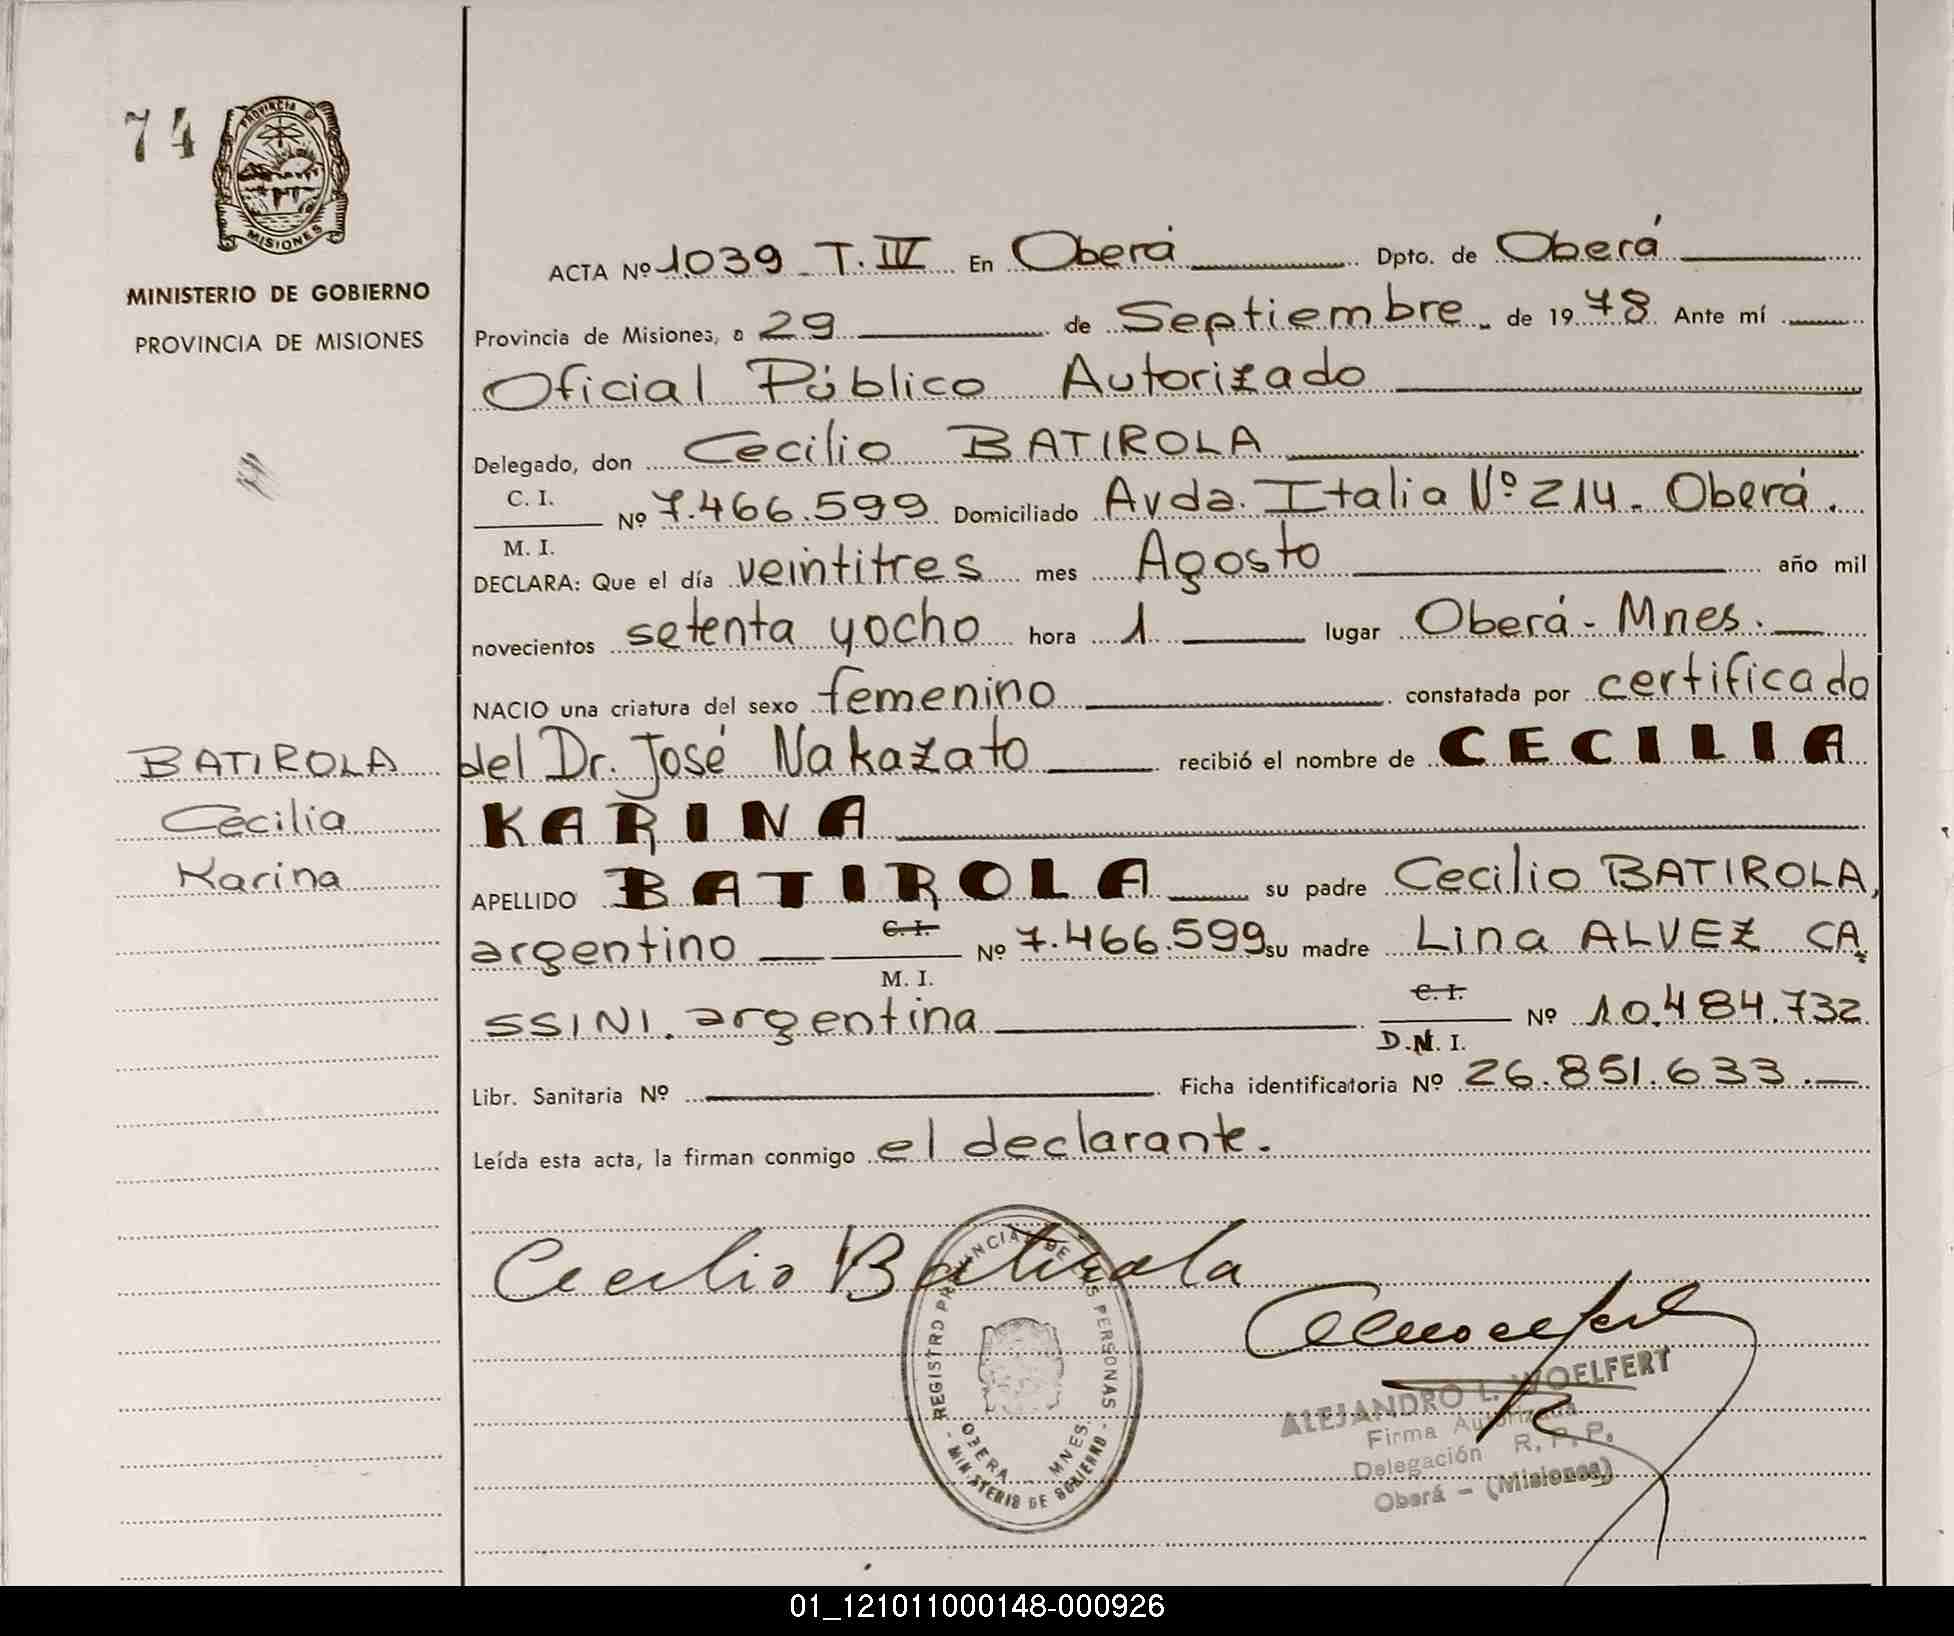 74
PROVINCIA DE
MISIONES
MINISTERIO DE GOBIERNO
PROVINCIA DE MISIONES
BATIROLA
Cecilia
Karina
ACTA Nº 1039 T. IV En Oberá Dpto. de Oberá
Provincia de Misiones, a 29 de Septiembre de 1978 Ante mí
Oficial Público Autorizado
Delegado, don Cecilio BATIROLA
C. I.
M. I.
Nº 7.466.599 Domiciliado Avda. Italia Nº 214. Oberá.
DECLARA: Que el día veintitres mes Agosto año mil
novecientos setenta yocho hora 1 lugar Oberá - Mnes.
NACIO una criatura del sexo femenino constatada por certificado
del Dr. José Nakazato recibió el nombre de CECILIA
KARINA
APELLIDO BATIROLA su padre Cecilio BATIROLA,
argentino C. I. M. I. Nº 7.466.599 su madre Lina ALVEZ CA
SSINI. argentina C. I. D.N. I. Nº 10.484.732
Libr. Sanitaria Nº Ficha identificatoria Nº 26.851.633.
Leída esta acta, la firman conmigo el declarante.
Cecilio Batirola
REGISTRO PROVINCIAL DE LAS PERSONAS
OBERA MNES
- MINISTERIO DE GOBIERNO -
ALEJANDRO L. WOELFERT
Firma Autorizada
Delegación R. P. P.
Oberá - (Misiones)
01_121011000148-000926